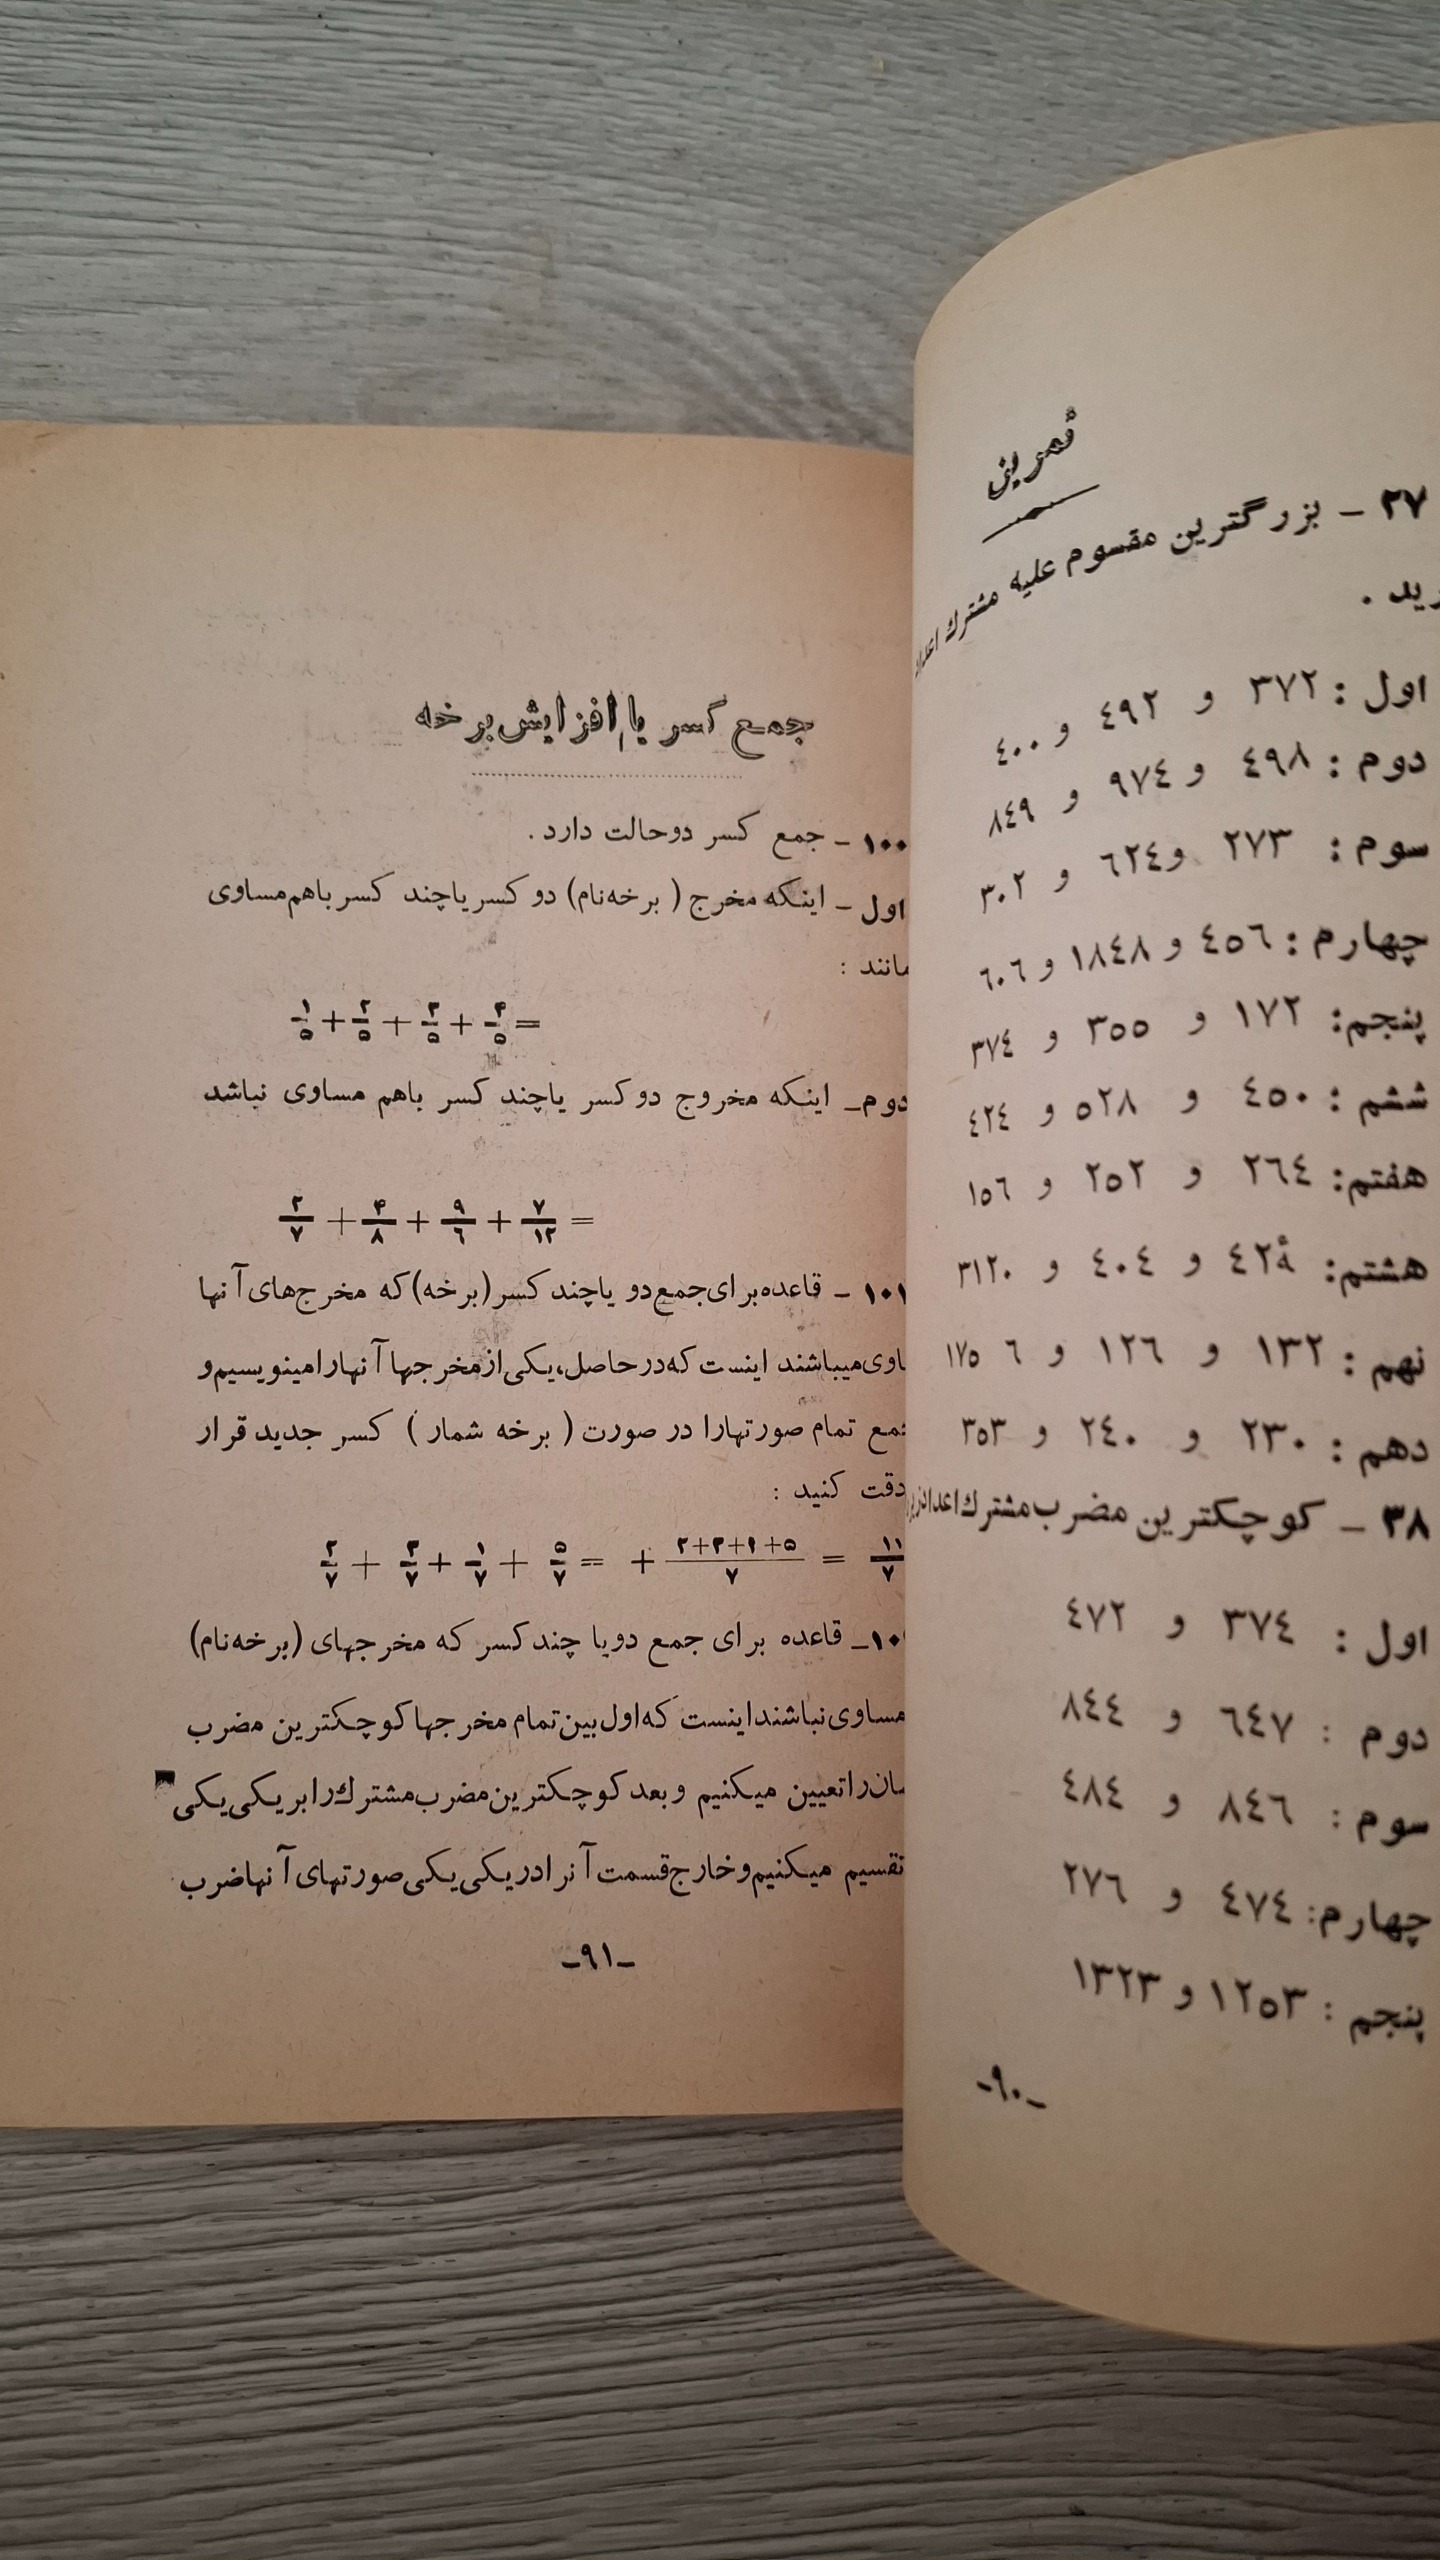 تمرین
۳۷ - بزرگترین مقسوم علیه مشترك
اول : ۳۷۲ و ٤۹۲ و ٤۰۰
دوم : ٤۹۸ و ۹۷٤ و ۸٤۹
سوم : ۲۷۳ و ٦۲٤ و ۳۰۲
چهارم : ٤٥٦ و ۱۸٤۸ و ٦۰٦
پنجم: ۱۷۲ و ۳٥٥ و ۳۷٤
ششم : ٤٥۰ و ٥۲۸ و ٤۲٤
هفتم: ۲٦٤ و ۲٥۲ و ۱٥٦
هشتم: ٤۲٥ و ٤۰٤ و ۳۱۲۰
نهم : ۱۳۲ و ۱۲٦ و ٦ ۱۷٥
دهم : ۲۳۰ و ۲٤۰ و ۳٥۳
۳۸ - کوچکترین مضرب مشترك
اول : ۳۷٤ و ٤۷۲
دوم : ٦٤۷ و ۸٤٤
سوم : ۸٤٦ و ٤۸٤
چهارم: ٤۷٤ و ۲۷٦
پنجم : ۱۲٥۳ و ۱۳۲۳
-۹۰-
جمع کسر یا افزایش برخه
۱۰۰ - جمع کسر دو حالت دارد .
اول - اینکه مخرج ( برخه نام) دو کسر یا چند کسر باهم مساوی
مانند :
۱/۵ + ۲/۵ + ۳/۵ + ۴/۵ =
دوم- اینکه مخروج دو کسر یا چند کسر باهم مساوی نباشد
۲/۷ + ۴/۸ + ۹/٦ + ۷/۱۲ =
۱۰۱ - قاعده برای جمع دو یا چند کسر (برخه) که مخرج های آنها
میباشند اینست که در حاصل، یکی از مخرجها آنها را مینویسیم و
جمع تمام صورتها را در صورت ( برخه شمار ) کسر جدید قرار
دقت کنید :
۲/۷ + ۳/۷ + ۱/۷ + ۵/۷ = + ۲+۳+۱+۵/۷ = ۱۱/۷
قاعده برای جمع دو یا چند کسر که مخرجهای (برخه نام)
مساوی نباشند اینست که اول بین تمام مخرجها کوچکترین مضرب
را تعیین میکنیم و بعد کوچکترین مضرب مشترك را بر یکی یکی
تقسیم میکنیم و خارج قسمت آنرا در یکی یکی صورتهای آنها ضرب
-۹۱-